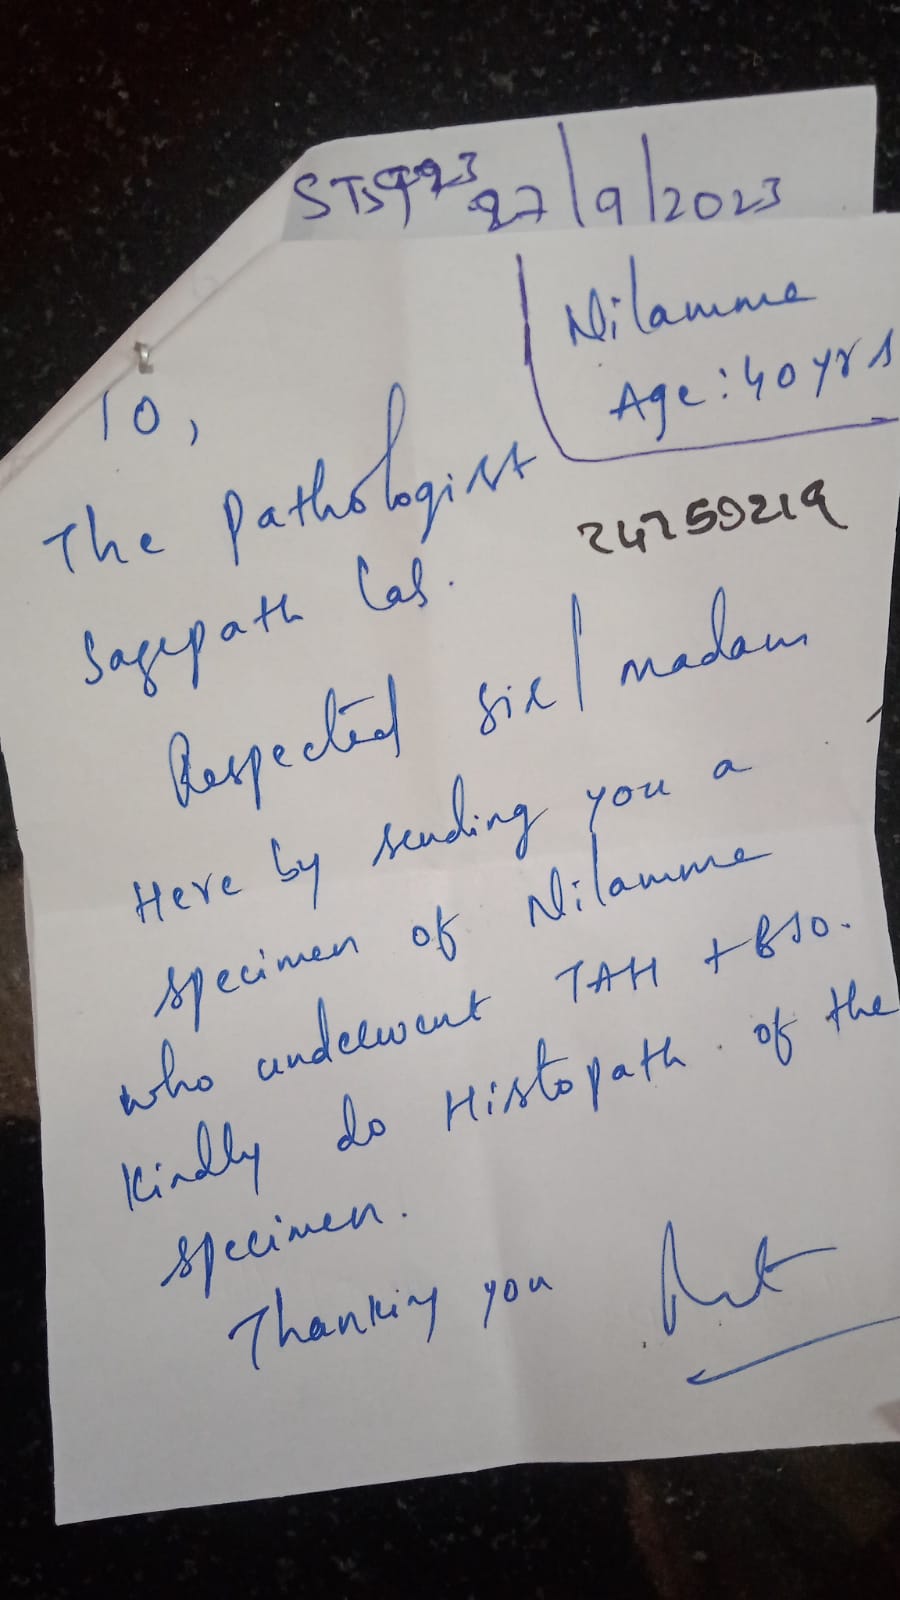 27/9/2023
Nilamma
Age: 40 yrs
To,
The Pathologist
24259219
Sagepath Lab.
Respected sir/madam
Here by sending you a
specimen of Nilamma
who underwent TAH + BSO.
Kindly do Histopath. of the
specimen.
Thanking you